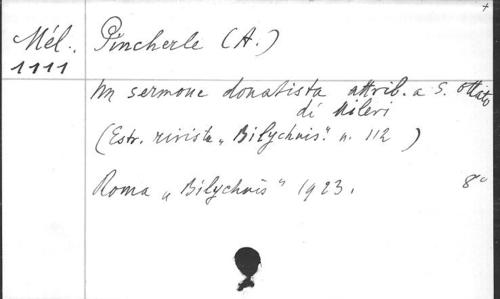 Mél. Pincherle (A.)
1111
Un sermone donatista attrib. a S. Ottato
di Milevi
(Estr. rivista „Bilychnis". n. 112 )
Roma „Bilychnis" 1923. 8°